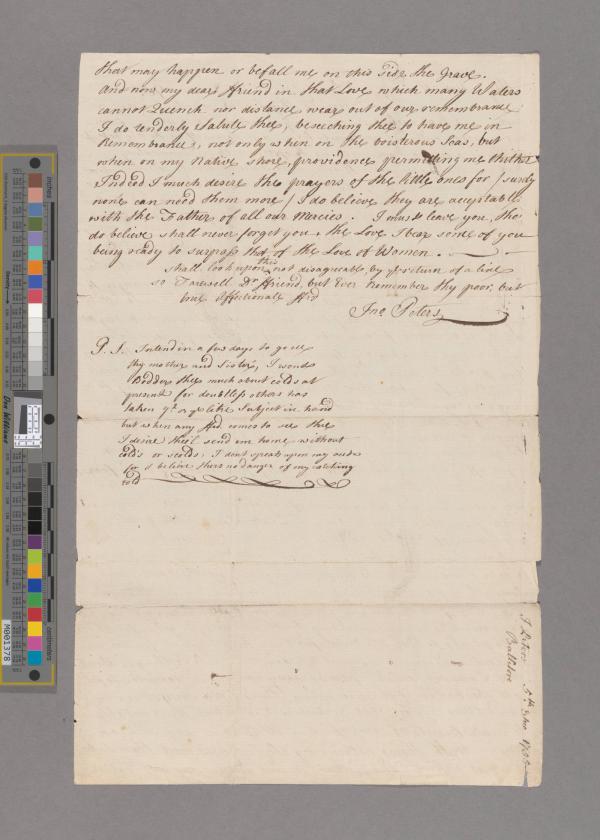 that may happen or befall me on this side the Grave.
And now my dear ffriend in that Love which many Waters
cannot Quench nor distance wear out of our remembrance
I do tenderly Salute thee, beseeching thee to have me in
Remembrance, not only when on the boisterous Seas, but
when on my Native shore, providence permitting me thither
Indeed I much desire the prayers of the little ones for /surely
none can need them more/ I do believe they are acceptable
with the Father of all our Mercies. I must leave you, tho:
do believe shall never forget you, the Love I bear some of you
being ready to surpass that of the Love of Women.
shall look upon this not disagreeable, by ye return of a line
so Farewell Dr ffriend, but Ever remember thy poor, but
true Affectionate ffrd
Jno. Peters
P.S. Intend in a few days to go see
thy mother and Sister, I would
thee much about colds at
present for doubtless others has
taken ye like Subject in hand
but when any ffrd comes to see thee
I desire thee'l send em home without
cold's or scolds, I dont speak upon my acct
for I believe there no danger of my catching
cold
J. Peters 5th
Ballitore
inches
centimeters
Don Williams
M001378